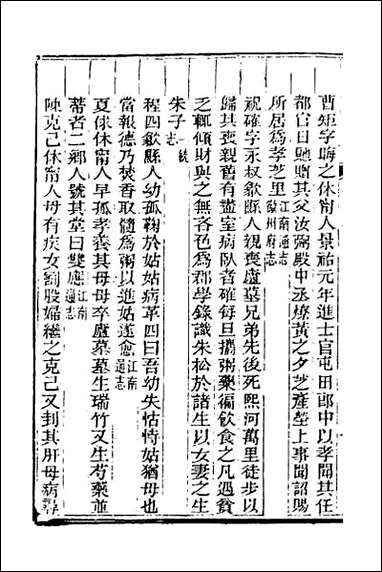 曹矩字誨之休甯人景祐元年進士官屯田郎中以孝聞其任
都官日貤贈其父汝弼殿中丞燎黃之夕芝產塋上事聞詔賜
所居爲孝芝里江南通志徽州府志
祝確字永叔歙縣人親喪廬墓兄弟先後死熙河萬里徒步以
歸其喪親舊有盡室病臥者確每旦攜粥藥徧飲食之凡遇貧
乏輒傾財與之無吝色爲郡學錄識朱松於諸生以女妻之生
朱子志統
程四歙縣人幼孤鞠於姑姑病革四曰吾幼失怙恃姑猶母也
當報德乃焚香取髓爲粥以進姑遂愈江南通志
夏俅休甯人早孤孝養其母母卒廬墓墓生瑞竹又生芍藥並
蒂者二鄉人號其堂曰雙應江南通志
陳克己休甯人母有疾女劉股婦繼之克己又刲其肝母病尋